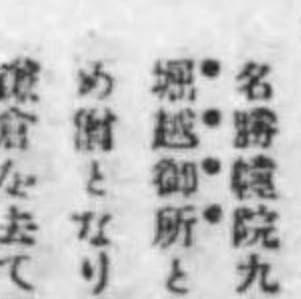 名勝幢院九
堀越御所と
め附となり
鎌倉を去て